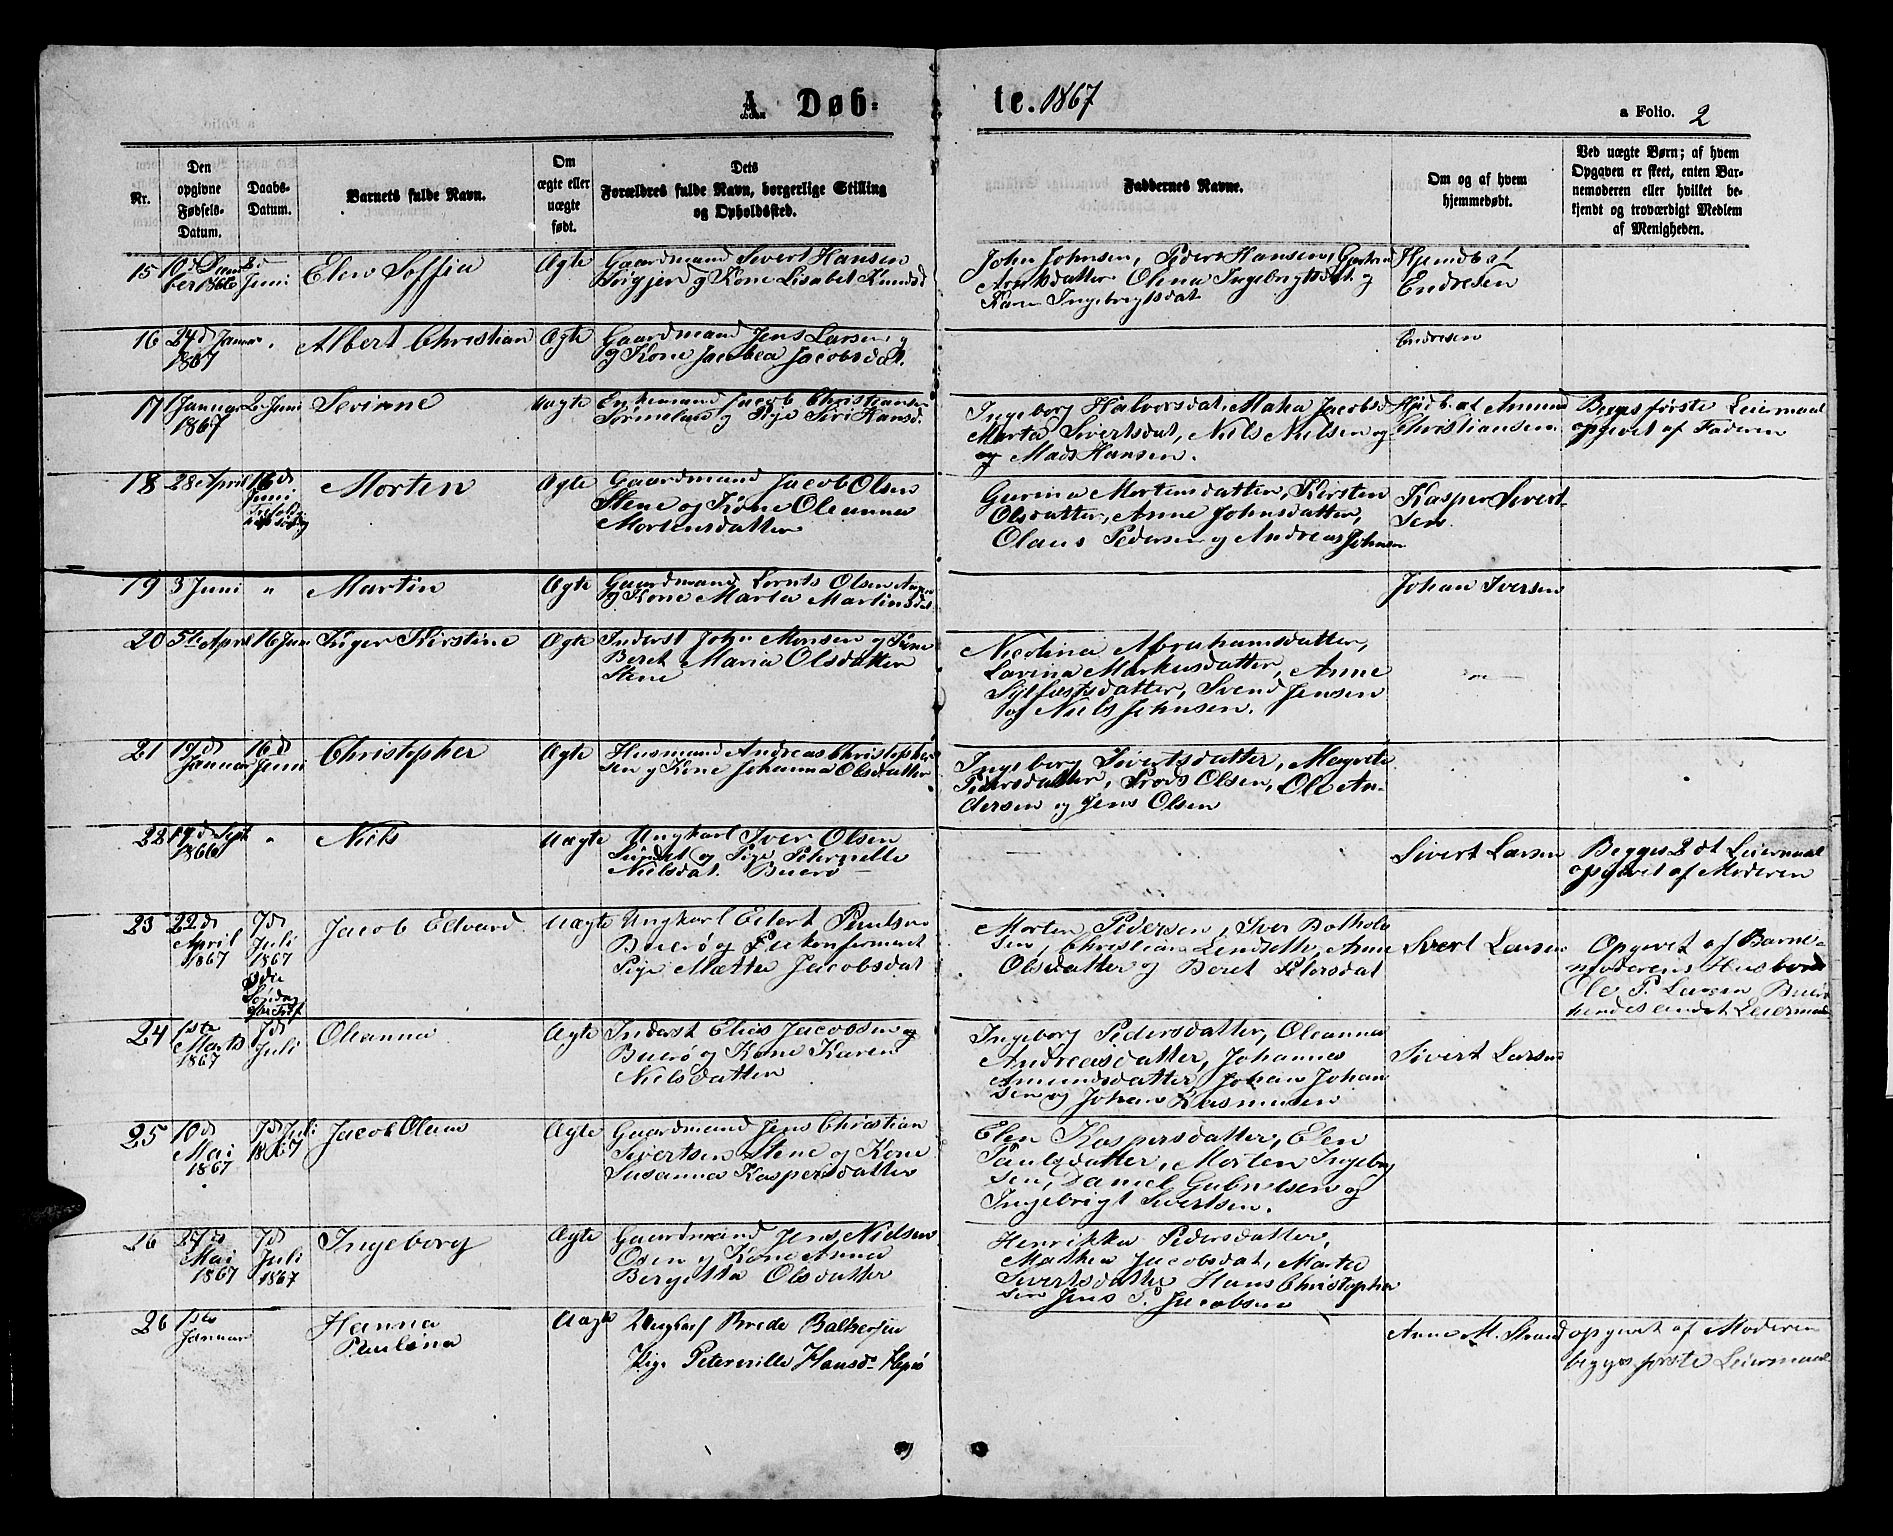 A. Døb-
te. 1867
a Folio. 2
Nr.
Den opgivne Fødsels-Datum.
Daabs-Datum.
Barnets fulde Navn.
Om ægte eller uægte født.
Dets Forældres fulde Navn, borgerlige Stilling og Opholdssted.
Faddernes Navne.
Om og af hvem hjemmedøbt.
Ved uægte Børn; af hvem Opgaven er skeet, enten Bar-nemoderen eller hvilket be-kjendt og troværdigt Medlem af Menigheden.
15 Juni Elen Soffia Ægte Gaardmand Sivert Hansen
og Kone Lisabet Knudsd
John Johnsen, Peder Hansen,
Olena Ingebrigtsdat og
Karen Ingebrigtsdat
Hjemdb af
Endresen
16 24d Januar 1867 Albert Christian Ægte Gaardmand Jens Larsen
og Kone Jacobea Jacobsdat.
Endresen
17 Januar 1867 Juni Sevirine Uægte Enkemand Jacob Christiansen
og Pige Siri Hansd.
Ingeborg Halvorsdat, Jacobsd
Marta Sivertsdat, Niels Nielsen og
og Mads Hansen.
Hjdb. af Amund
Christiansen
Begges første Leiermaal
opgivet af Faderen
18 28 April 16d Juni Morten Ægte Gaardmand Jacob Olsen
Stene og Kone Oleanna
Mortensdatter
Gurina Mortensdatter, Kirsten
Olsdatter, Anne Johnsdatter,
Olaus Pedersen og Andreas Johnsen
Kasper Sivert-
sen
19 3 Juni " Martin Ægte Gaardmand Lornts Olsen
og Kone Marta Martinsdat
Johan Iversen
20 5te April 16 Juni Inger Kirstine Ægte Inderst John Monsen og Kone
Beret Maria Olsdatter
Stene
Nicolina Abrahamsdatter,
Lavina Markusdatter, Anne
Sylfestsdatter, Svend Jensen
og Niels Johnsen.
21 17d Januar 16d Juni Christopher Ægte Husmand Andreas Christopher-
sen og Kone Johanna Olsdatter
Ingeborg Sivertsdatter, Magrete
Pedersdatter, Olsen, Ole An-
dersen og Jens Olsen
22 19d Sept 1866 " Niels Uægte Ungkarl Iver Olsen
og Pige Peternille
Nielsdat. Buerø
Sivert Larsen
Begges 2det Leiermaal
opgivet af Moderen
23 22d April 1867 7d Juli 1867 Jacob Edvard Uægte Ungkarl Eilert
Buerø og
Pige Mætte Jacobsdat
Morten Pedersen, Iver
sen, Christian Lindseth, Anne
Olsdatter og Beret Petersdat
Sivert Larsen
Opgivet af Barne-
moderens Husbond
Ole P. Larsen Buerø
hendes andet Leiermaal
24 1ste Marts 1867 7d Juli Oleanna Ægte Inderst Elias Jacobsen og
Buerø og Kone Karen
Nielsdatter
Ingeborg Pedersdatter, Oleanna
Andreasdatter, Johannes
Amundsdatter, Johan Johan
sen og Johan Rasmusen
Sivert Larsen
25 10d Mai 1867 7d Juli 1867 Jacob Olaus Ægte Gaardmand Jens Christian
Sivertsen Stene og Kone
Susanna Kaspersdatter
Elen Kaspersdatter, Elen
Paulsdatter, Morten Ingebrig
sen, Daniel Gabrielsen og
Ingebrigt Sivertsen.
26 27d Mai 1867 7d Juli 1867 Ingeborg Ægte Gaardmand Jens Nielsen
Osen og Kone Anna
Bergitta Olsdatter
Henrikka Pedersdatter,
Mathea Jacobsdat, Marta
Sivertsdatter, Hans Christopher
sen Jens P. Jacobsen
26 1ste Januar Hanna
Paulina Uægte Ungkarl Brede Baltzersen
Pige Peternille Hansd.
Anne M. Strand
opgivet af Moderen
begges første Leiermaal